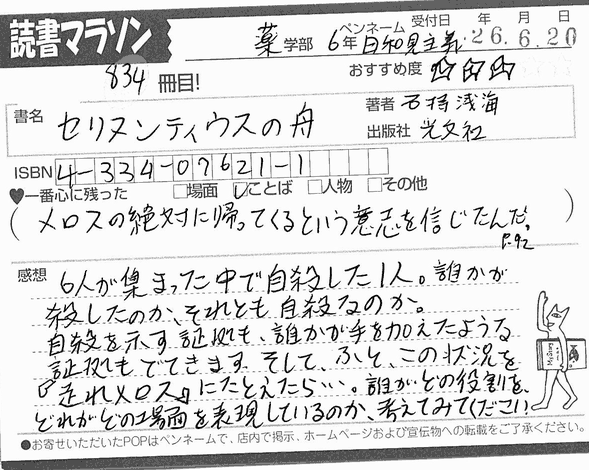 読書マラソン
薬学部 6年 ペンネーム 日和見主義 受付日 年 月 日 26.6.20
834冊目! おすすめ度 ☆☆☆
書名 セリヌンティウスの舟 著者 石持浅海
出版社 光文社
ISBN 4-334-07621-1
♥一番心に残った □場面 ☑ことば □人物 □その他
(メロスの絶対に帰ってくるという意志を信じたんだ。)
P.92
感想 6人が集まった中で自殺した1人。誰かが
殺したのか、それとも自殺なのか。
自殺を示す証拠も、誰かが手を加えたような
証拠もでてきます。そして、ふと、この状況を
『走れメロス』にたとえたら…。誰がどの役割を、
どれがどの場面を表現しているのか、考えてみてください
●お寄せいただいたPOPはペンネームで、店内で掲示、ホームページおよび宣伝物への転載をご了承ください。